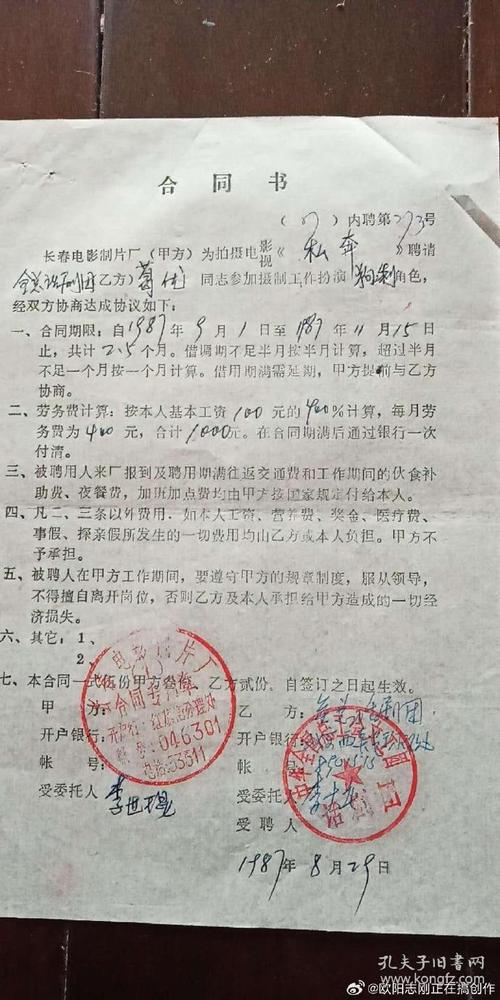 合同书
(87)内聘第273号
长春电影制片厂(甲方)为拍摄电影视《私奔》聘请
全总话剧团(乙方)葛优同志参加摄制工作扮演 角色,
经双方协商达成协议如下:
一、合同期限:自1987年9月1日至1987年11月15日
止,共计2.5个月。借调期不足半月按半月计算,超过半月
不足一个月按一个月计算。借用期满需延期,甲方提前与乙方
协商。
二、劳务费计算:按本人基本工资100元的400%计算,每月劳
务费为400元,合计1000元。在合同期满后通过银行一次
付清。
三、被聘用人来厂报到及聘用期满往返交通费和工作期间的伙食补
助费、夜餐费,加班加点费均由甲方按国家规定付给本人。
四、凡二、三条以外费用,如本人工资、营养费、奖金、医疗费、
事假、探亲假所发生的一切费用均由乙方或本人负担。甲方不
予承担。
五、被聘人在甲方工作期间,要遵守甲方的规章制度,服从领导,
不得擅自离开岗位,否则乙方及本人承担给甲方造成的一切经
济损失。
六、其它:1、
2、
七、本合同一式 份甲方叁份,乙方贰份,自签订之日起生效。
甲方: 乙方:全总话剧团
开户银行: 开户银行:
帐号: 帐号:
受委托人 李世 受委托人
受聘人
1987年8月29日
长春电影制片厂
合同专用章
开户行:红旗街办理处
帐号:046301
电话:53511
话剧团
孔夫子旧书网
kongfz.com
@欧阳志刚正在搞创作